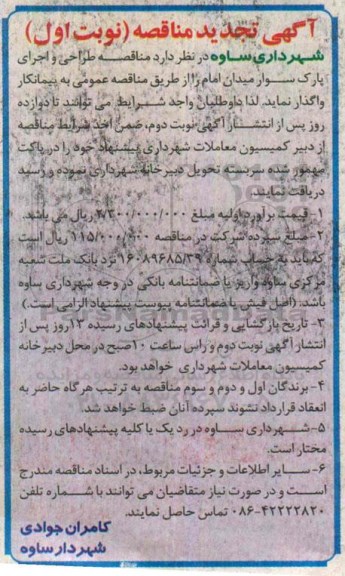 آگهی تجدید مناقصه (نوبت اول)
شهرداری ساوه در نظر دارد مناقصه طراحی و اجرای
پارک سوار میدان امام را از طریق مناقصه عمومی به پیمانکار
واگذار نماید. لذا داوطلبان واجد شرایط می توانند تا دوازده
روز پس از انتشار آگهی نوبت دوم، ضمن اخذ شرایط مناقصه
از دبیر کمیسیون معاملات شهرداری پیشنهاد خود را در پاکت
مهمور شده سربسته تحویل دبیرخانه شهرداری نموده و رسید
دریافت نمایند.
۱- قیمت برآورد اولیه مبلغ ۲/۳۰۰/۰۰۰/۰۰۰ ریال می باشد.
۲- مبلغ سپرده شرکت در مناقصه ۱۱۵/۰۰۰/۰۰۰ ریال است
که باید به حساب شماره ۱۶۰۸۹۶۸۵/۳۹ نزد بانک ملت شعبه
مرکزی ساوه واریز یا ضمانتنامه بانکی در وجه شهرداری ساوه
باشد. (اصل فیش یا ضمانتنامه پیوست پیشنهاد الزامی است.)
۳- تاریخ بازگشایی و قرائت پیشنهادهای رسیده ۱۳روز پس از
انتشار آگهی نوبت دوم و راس ساعت ۱۰صبح در محل دبیرخانه
کمیسیون معاملات شهرداری خواهد بود.
۴- برندگان اول و دوم و سوم مناقصه به ترتیب هرگاه حاضر به
انعقاد قرارداد نشوند سپرده آنان ضبط خواهد شد.
۵- شهرداری ساوه در رد یک یا کلیه پیشنهادهای رسیده
مختار است.
۶- سایر اطلاعات و جزئیات مربوط، در اسناد مناقصه مندرج
است و در صورت نیاز متقاضیان می توانند با شماره تلفن
۰۸۶-۴۲۲۲۲۸۲۰ تماس حاصل نمایند.
کامران جوادی
شهردار ساوه